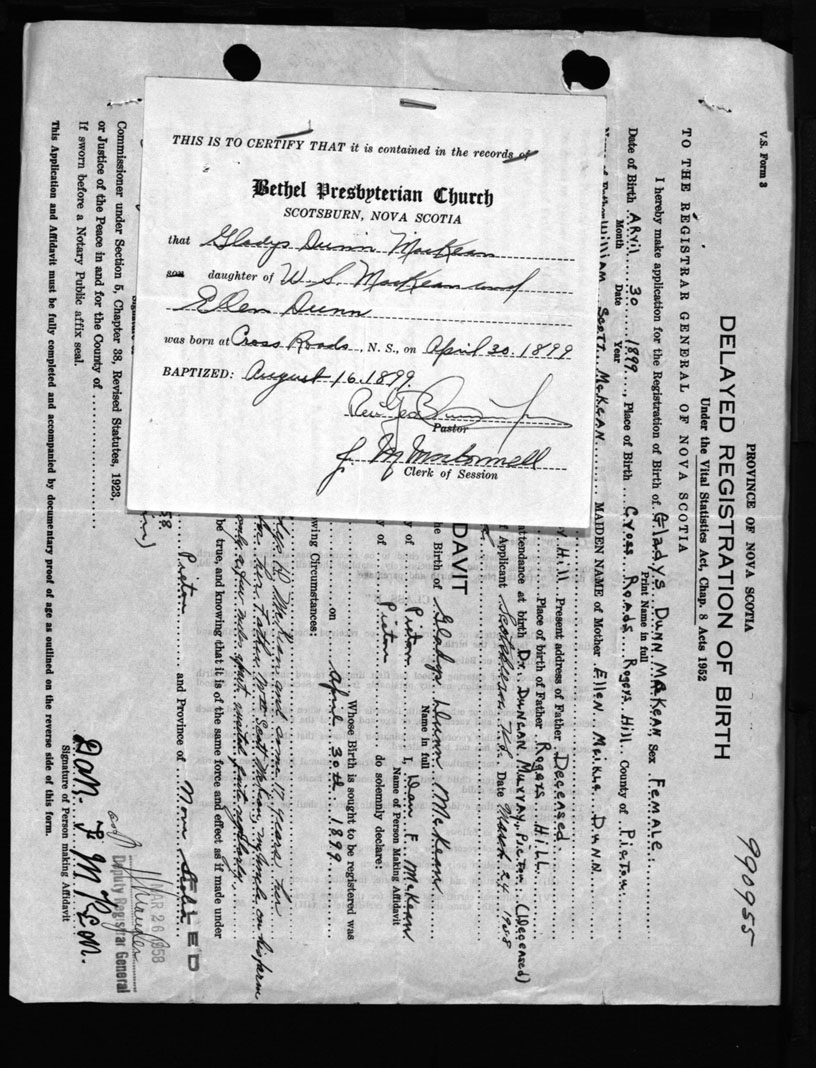 THIS IS TO CERTIFY THAT it is contained in the records of
Bethel Presbyterian Church
SCOTSBURN, NOVA SCOTIA
that Gladys Dunn MacKean
son daughter of W. S. MacKean and
Ellen Dunn
was born at Cross Roads, N. S., on April 30. 1899
BAPTIZED: August 16. 1899.
Rev. Geo
Pastor
Clerk of Session
V.S. Form 3
990955
PROVINCE OF NOVA SCOTIA
DELAYED REGISTRATION OF BIRTH
Under the Vital Statistics Act, Chap. 8 Acts 1952
TO THE REGISTRAR GENERAL OF NOVA SCOTIA
I hereby make application for the Registration of Birth of Gladys Dunn McKean Sex Female
Print Name in full
Date of Birth April 30 1899, Place of Birth Cross Roads Rogers Hill County of Pictou
Month Date Year
William Scott McKean MAIDEN NAME of Mother Ellen Meikle Dunn
Hill Present address of Father Deceased
Place of birth of Father Rogers Hill
attendance at birth Dr. Duncan Murray, Pictou (Deceased)
Applicant N.S. Date March 24 1958
DAVIT
the Birth of Gladys Dunn McKean
Name in full
of Pictou I, Dan. F. McKean
Name of Person Making Affidavit
y of Pictou do solemnly declare:
Whose Birth is sought to be registered was
on April 30th 1899
wing Circumstances:
D McKean and some 17 years her
her father Wm Scott McKean, my uncle on his farm
only a few rods apart
be true, and knowing that it is of the same force and effect as if made under
Pictou and Province of Nova Scotia
58
Commissioner under Section 5, Chapter 38, Revised Statutes, 1923,
or Justice of the Peace in and for the County of
If sworn before a Notary Public affix seal.
FILED
MAR 26 1958
Deputy Registrar General
Dan F McKean.
Signature of Person making Affidavit
This Application and Affidavit must be fully completed and accompanied by documentary proof of age as outlined on the reverse side of this form.